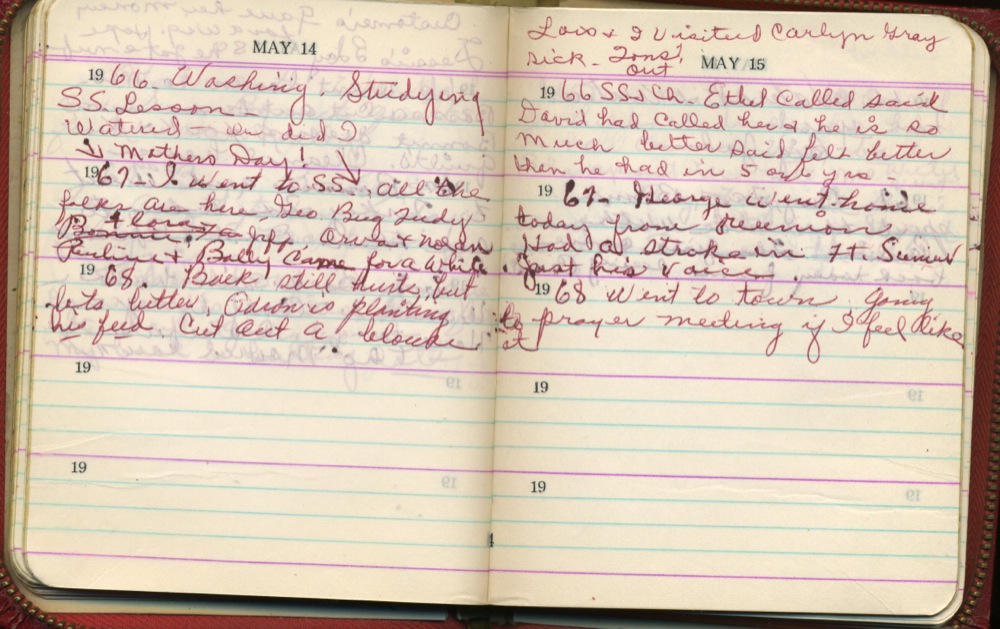 MAY 14
1966. Washing & Studying
S.S. Lesson -
Watered - or did I
Mothers Day!
1967 - I went to SS, all the
folks are here, Geo Bug Judy
Bonnie
Pauline & Baby came for a while
1968. Back still hurts, but
feels better. Odron is planting
his feed. Cut out a blouse
19
19
Lois & I visited Carlyn Gray
sick - Tons!
out
MAY 15
1966 SS & Ch. Ethel called said
David had called her & he is so
much better said felt better
then he had in 5 or 6 yrs -
1967 - George went home
today from Reunion
Had a stroke in Ft. Sumner
Just his voice
1968 Went to town. Going
to prayer meeting if I feel like
it
19
19